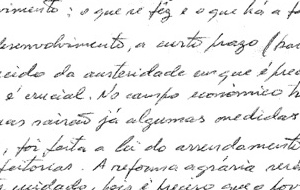 vimento; o que se fêz e o que há a f
desenvolvimento, a curto prazo (par
cuido da austeridade em que é prec
é crucial. No campo econômico h
uas sairão já algumas medidas
, foi feita a lei do arrendamento
feitorias. A reforma agrária será
cuidado, pois é preciso que o